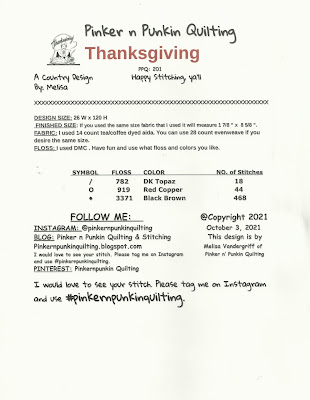 Pinker n Punkin Quilting
Thanksgiving
Thanksgiving
PPQ: 201
A Country Design
Happy Stitching, ya'll
By: Melisa
xxxxxxxxxxxxxxxxxxxxxxxxxxxxxxxxxxxxxxxxxxxxxxxxxxxxxxxxxxxxxxxxxxxx
DESIGN SIZE: 26 W x 120 H
FINISHED SIZE: If you used the same size fabric that I used it will measure 1 7/8 " x 8 5/8 ".
FABRIC: I used 14 count tea/coffee dyed aida. You can use 28 count evenweave if you
desire the same size.
FLOSS: I used DMC . Have fun and use what floss and colors you like.
SYMBOL FLOSS COLOR NO. of Stitches
/ 782 DK Topaz 18
O 919 Red Copper 44
• 3371 Black Brown 468
FOLLOW ME:
@Copyright 2021
INSTAGRAM: @pinkernpunkinquilting
October 3, 2021
BLOG: Pinker n Punkin Quilting & Stitching
This design is by
Pinkernpunkinquilting.blogspot.com
Melisa Vandergriff of
I would love to see your stitch. Please tag me on Instagram
Pinker n' Punkin Quilting
and use #pinkernpunkinquilting.
PINTEREST: Pinkernpunkin Quilting
I would love to see your stitch. Please tag me on Instagram
and use #pinkernpunkinquilting.